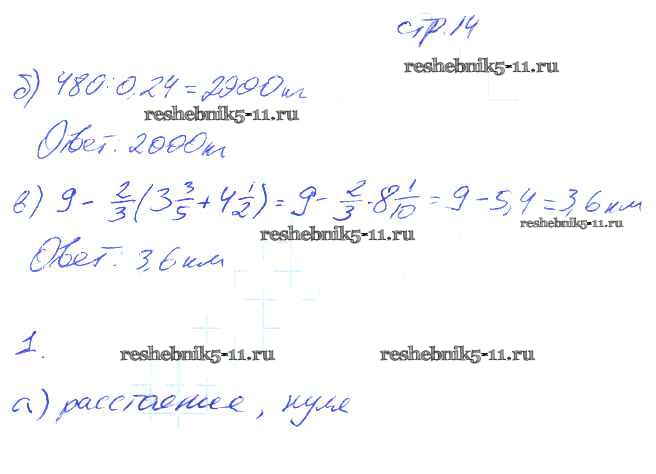 стр. 14
reshebnik5-11.ru
б) 480 : 0,24 = 2000 кг
reshebnik5-11.ru
Ответ: 2000 кг
в) 9 - 2/3 (3 3/5 + 4 1/2) = 9 - 2/3 · 8 1/10 = 9 - 5,4 = 3,6 км
reshebnik5-11.ru
reshebnik5-11.ru
Ответ: 3,6 км
1.
reshebnik5-11.ru reshebnik5-11.ru
а) расстояние, нуля